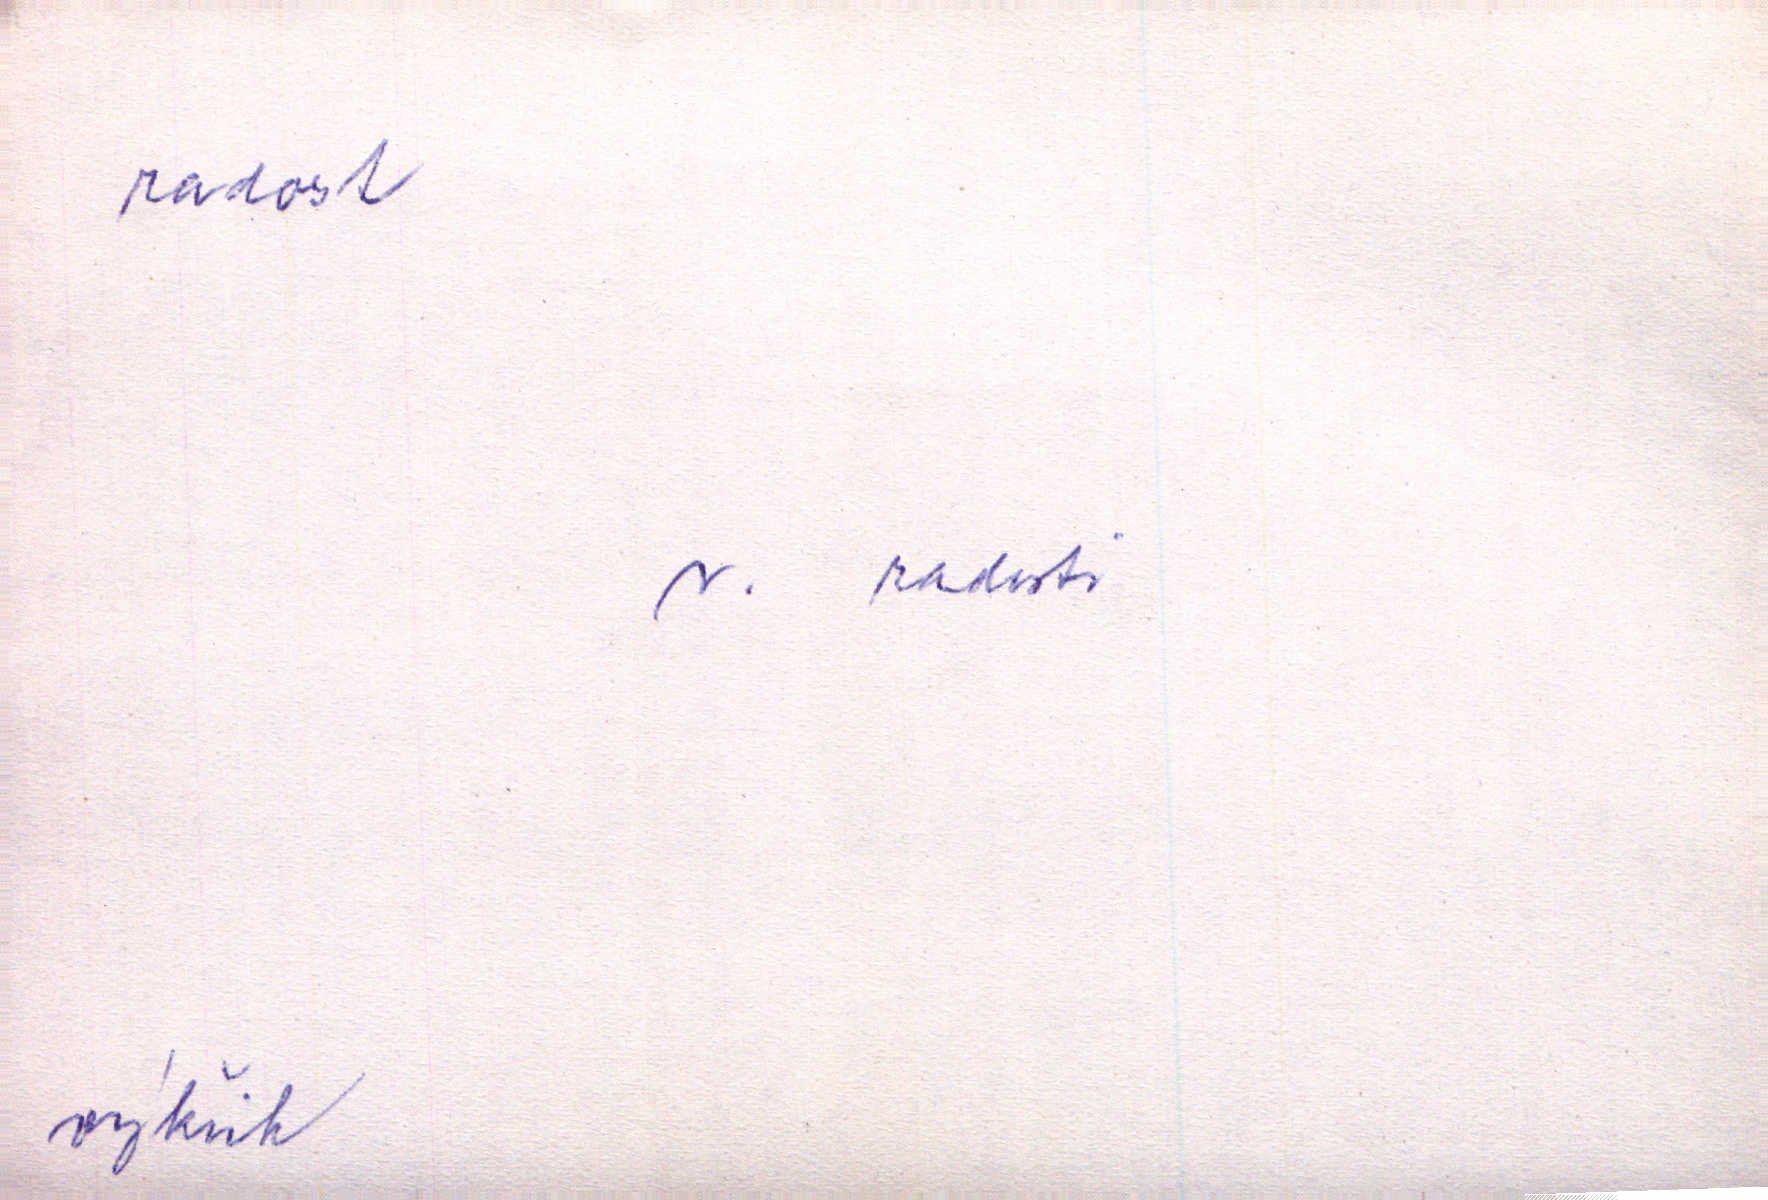 radost
v. radosti
výkřik